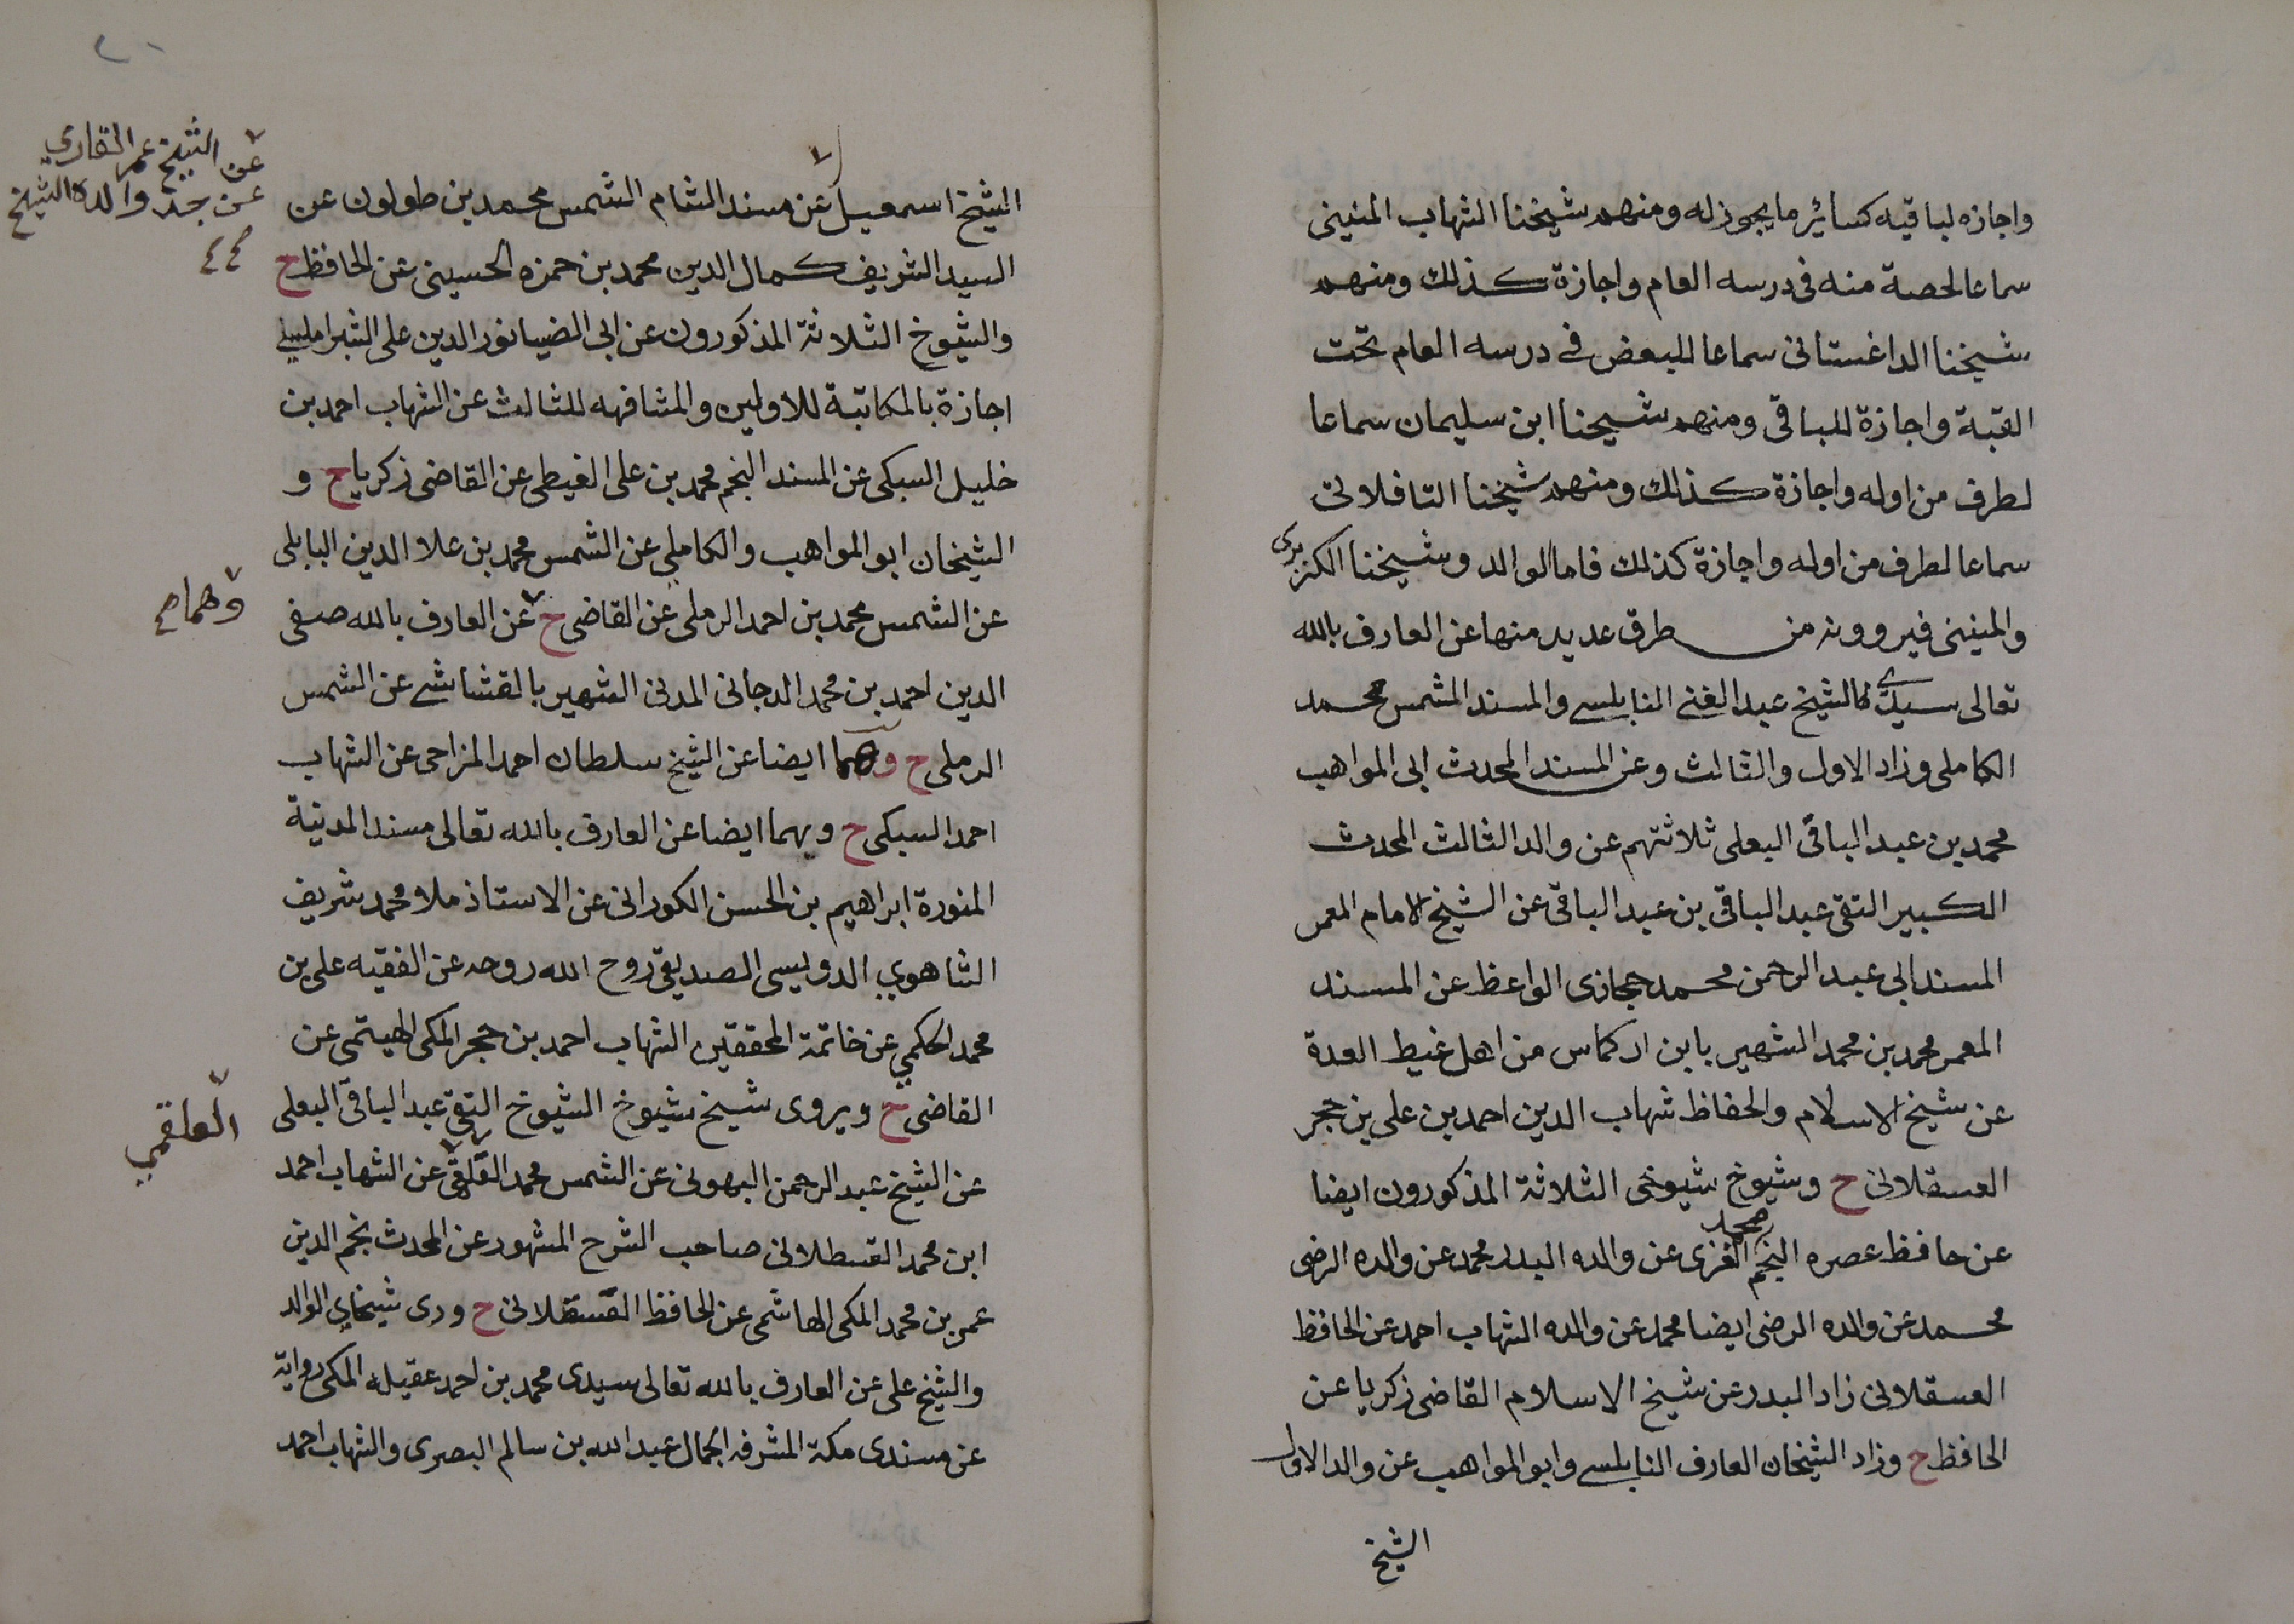 واجازه لباقيه كسائر ما يجوز له ومنهم شيخنا الشهاب المنينى
سماعا لحصة منه فى درسه العام واجازة كذلك ومنهم
شيخنا الداغستانى سماعا للبعض فى درسه العام تحت
القبة واجازة للباقى ومنهم شيخنا ابن سليمان سماعا
لطرف من اوله واجازة كذلك ومنهم شيخنا التافلاتى
سماعا لطرف من اوله واجازة كذلك فاما الوالد وشيخنا الكزبرى
والمنينى فيروونه من طرق عديد منها عن العارف بالله
تعالى سيدى كالشيخ عبد الغنى النابلسى والمسند الشمس محمد
الكاملى وزاد الاول والثالث وعن المسند المحدث ابى المواهب
محمد بن عبد الباقى البعلى ثلاثتهم عن والد الثالث المحدث
الكبير التقى عبد الباقى بن عبد الباقى عن الشيخ الامام المعمر
المسند ابى عبد الرحمن محمد حجازى الواعظ عن المسند
المعمر محمد بن محمد الشهير بابن اركماس من اهل غيط العدة
عن شيخ الاسلام والحفاظ شهاب الدين احمد بن على بن حجر
العسقلانى ح وشيوخ شيوخى الثلاثة المذكورون ايضا
عن حافظ عصره النجم محمد الغزى عن والده البدر محمد عن والده الرضى
محمد عن والده الرضى ايضا محمد عن والده الشهاب احمد عن الحافظ
العسقلانى زاد البدر عن شيخ الاسلام القاضى زكريا عن
الحافظ ح وزاد الشيخان العارف النابلسى وابو المواهب عن والد الاول
الشيخ
٢٠
الشيخ اسمعيل عن مسند الشام الشمس محمد بن طولون عن
عن الشيخ عمر القاري
عن جد والده الشيخ
السيد الشريف كمال الدين محمد بن حمزه الحسينى عن الحافظ ح
والشيوخ الثلاثة المذكورون عن ابى الضيا نور الدين على الشبراملسى
اجازة بالمكاتبة للاولين والمشافهه للثالث عن الشهاب احمد بن
خليل السبكى عن المسند النجم محمد بن على الغيطى عن القاضى زكريا ح و
الشيخان ابو المواهب والكاملى عن الشمس محمد بن علا الدين البابلى
عن الشمس محمد بن احمد الرملى عن القاضى ح عن العارف بالله صفى
وهما صح
الدين احمد بن محمد الدجانى المدنى الشهير بالقشاشى عن الشمس
الرملى ح وهما ايضا عن الشيخ سلطان احمد المزاحى عن الشهاب
احمد السبكى ح وبهما ايضا عن العارف بالله تعالى مسند المدنية
المنورة ابراهيم بن الحسن الكورانى عن الاستاذ ملا محمد شريف
الشاهوي الدويسى الصديقى روح الله روحه عن الفقيه على بن
محمد الحكمي عن خاتمة المحققين الشهاب احمد بن حجر المكى الهيتمى عن
القاضى ح ويروى شيخ شيوخ الشيوخ التقى عبد الباقى البعلى
العلقمي
عن الشيخ عبد الرحمن البهوتى عن الشمس محمد عن الشهاب احمد
ابن محمد القسطلانى صاحب الشرح المشهور عن المحدث نجم الدين
عمر بن محمد المكى الهاشمى عن الحافظ العسقلانى ح وروى شيخاي الوالد
والشيخ على عن العارف بالله تعالى سيدى محمد بن احمد عقيله المكى رواية
عن مسندى مكة المشرفه الجمال عبد الله بن سالم البصرى والشهاب احمد